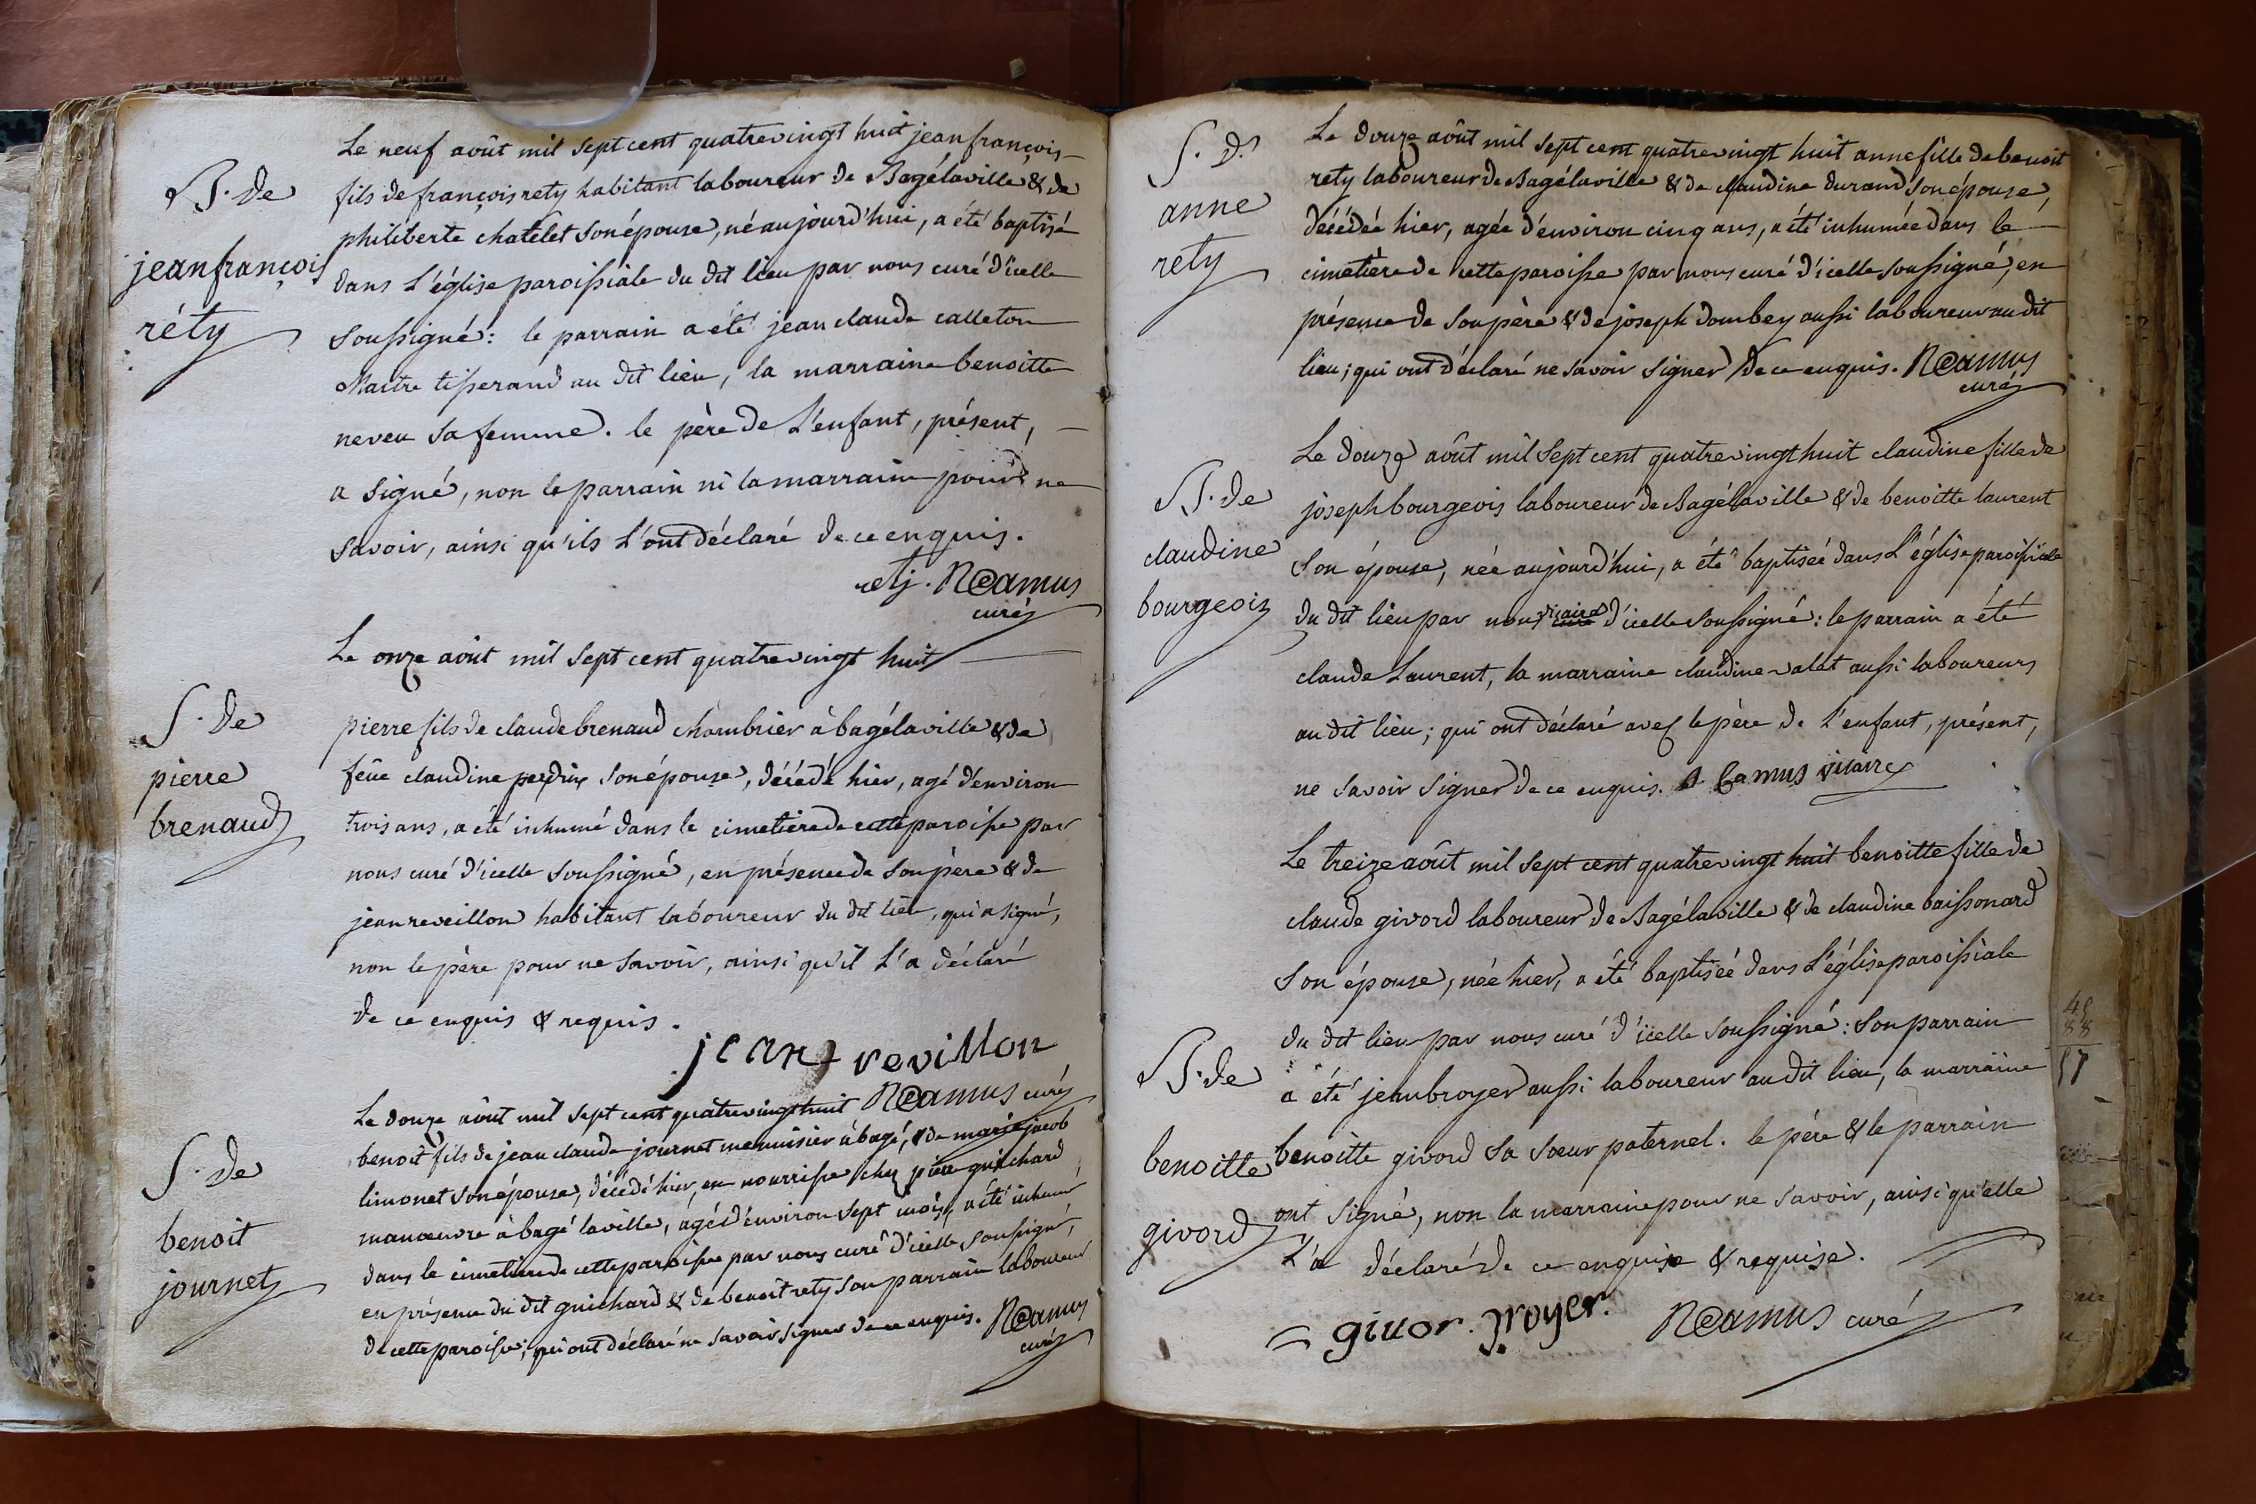 B. de
jean françois
réty
Le neuf aoùt mil sept cent quatrevingt huit jean françois
fils de françois rety habitant laboureur de Bagélaville & de
philiberte chatelet son épouse, né aujourd'hui, a été baptisé
dans L'église paroissiale du dit lieu par nous curé d'icelle
soussigné : le parrain a été jean claude calleton
Maitre tisserand au dit lieu, la marraine benoitte
neveu sa femme. le père de L'enfant, présent,
a signé, non le parrain ni la marraine pour ne
savoir, ainsi qu'ils L'ont déclaré de ce enquis.
retj. Camus
curé
S. de
pierre
brenaud
Le onze aoùt mil sept cent quatrevingt huit
pierre fils de claude brenaud chambrier à bagélaville & de
feüe claudine perdrix son épouse, décédé hier, agé d'environ
trois ans, a été inhumé dans le cimetière de cette paroisse par
nous curé d'icelle soussigné, en présence de son père & de
jean reveillon habitant laboureur du dit lieu, qui a signé,
non le père pour ne savoir, ainsi qu'il L'a déclaré
de ce enquis & requis.
jean revillon
Camus curé
S. de
benoit
journet
Le douze aoùt mil sept cent quatrevingt huit
benoit fils de jean claude journet menuisier à bagé, & de marie jacob
limonet son épouse, décédé hier, en nourrisse chez pierre guichard
manœuvre à bagé laville, agé d'environ sept mois, a été inhumé
dans le cimetiere de cette paroisse par nous curé d'icelle soussigné,
en présence du dit guichard & de benoit rety son parrain laboureur
de cette paroisse, qui ont déclaré ne savoir signer de ce enquis. Camus
curé
S. d.
anne
rety
Le douze aoùt mil sept cent quatrevingt huit anne fille de benoit
rety laboureur de Bagélaville & de claudine durand son épouse,
décédée hier, agée d'environ cinq ans, a été inhumée dans le
cimetière de cette paroisse par nous curé d'icelle soussigné, en
présence de son père & de joseph dombey aussi laboureur au dit
lieu; qui ont déclaré ne savoir signer de ce enquis. Camus
curé
B. de
claudine
bourgeois
Le douze aoùt mil sept cent quatrevingt huit claudine fille de
joseph bourgeois laboureur de Bagélaville & de benoitte laurent
son épouse, née aujourd'hui, a été baptisée dans L'église paroissiale
du dit lieu par nous vicaire curé d'icelle soussigné : le parrain a été
claude Laurent, la marraine claudine valet aussi laboureurs
au dit lieu; qui ont déclaré avec le père de L'enfant, présent,
ne savoir signer de ce enquis. Camus vicaire
B. de
benoitte
givord
Le treize aoùt mil sept cent quatrevingt huit benoitte fille de
claude givord laboureur de Bagélaville & de claudine baissonard
son épouse, née hier, a été baptisée dans L'église paroissiale
du dit lieu par nous curé d'icelle soussigné : son parrain
a été jean broyer aussi laboureur au dit lieu, la marraine
benoitte givord sa sœur paternel. le père & le parrain
ont signé, non la marraine pour ne savoir, ainsi qu'elle
L'a déclaré de ce enquise & requise.
givor. Broyer.
Camus curé